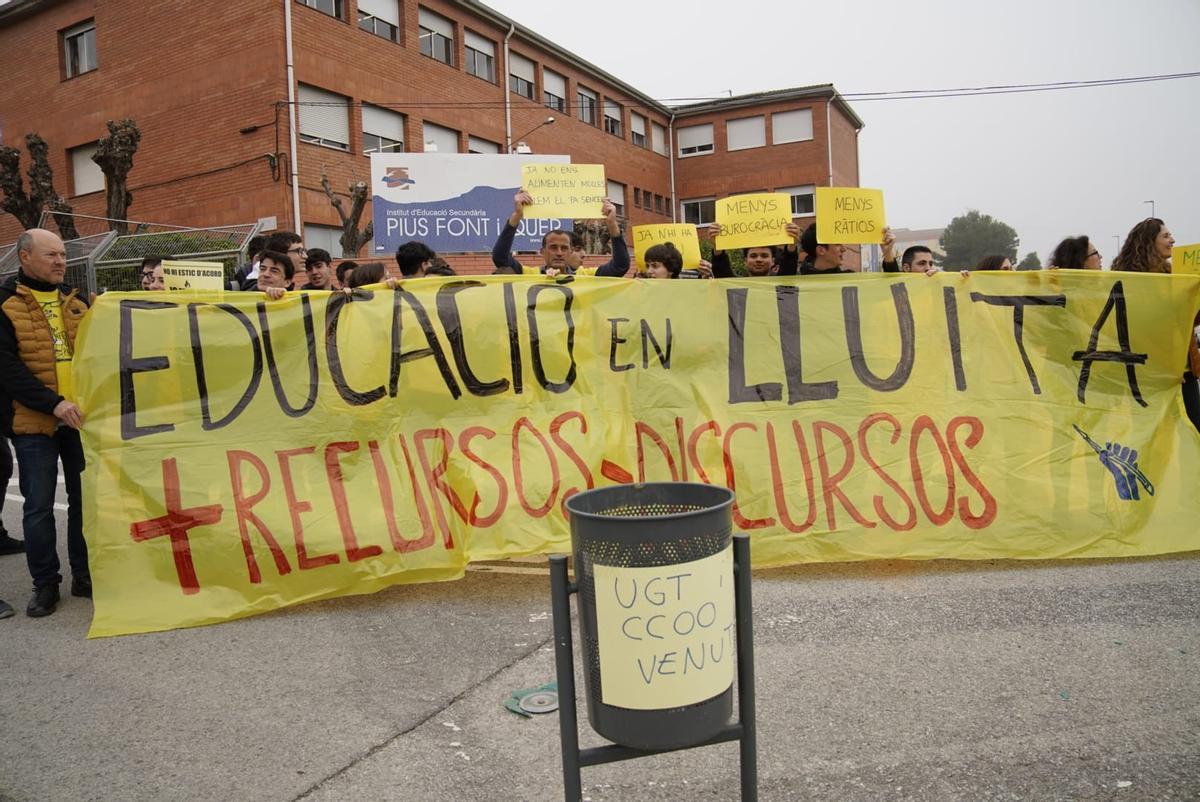 Institut d'Educació Secundària
PIUS FONT i QUER
JA NO ENS
ALIMENTEN MOLLES
VOLEM EL PA SENCER
MENYS
BUROCRÀCIA
MENYS
RÀTIOS
JA N'HI HA
NO HI ESTIC D'ACORD
EDUCACIÓ EN LLUITA
+ RECURSOS - DISCURSOS
UGT i
CCOO
VENUTS